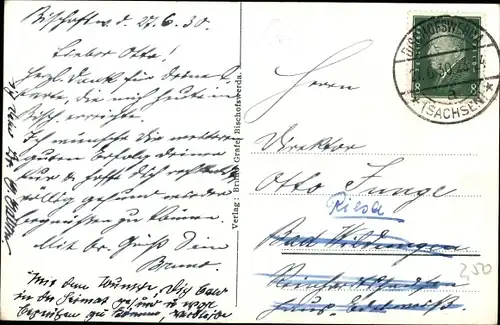 Bischofsw. d. 27.6.30.
Lieber Otto!
Herzl. Dank für Deine
Karte, die mich heute in
Bisch. erreichte.
Ich wünsche Dir weiteren
guten Erfolg Deiner
Kur & hoffe Dich recht bald
völlig gesund wieder
begrüssen zu können.
Mit br. Gruß Dein
Bruno.
Mit dem Wunsche, Dich bald
in der Heimat gesund u. wohl
begrüßen zu können, verbleibe
Verlag: Bruno Grafe, Bischofswerda.
BISCHOFSWERDA
(SACHSEN)
a
8
8
Herrn
Direktor
Otto Junge
Riesa
Bad Wildungen
Reinhardshausen
Haus
2,50